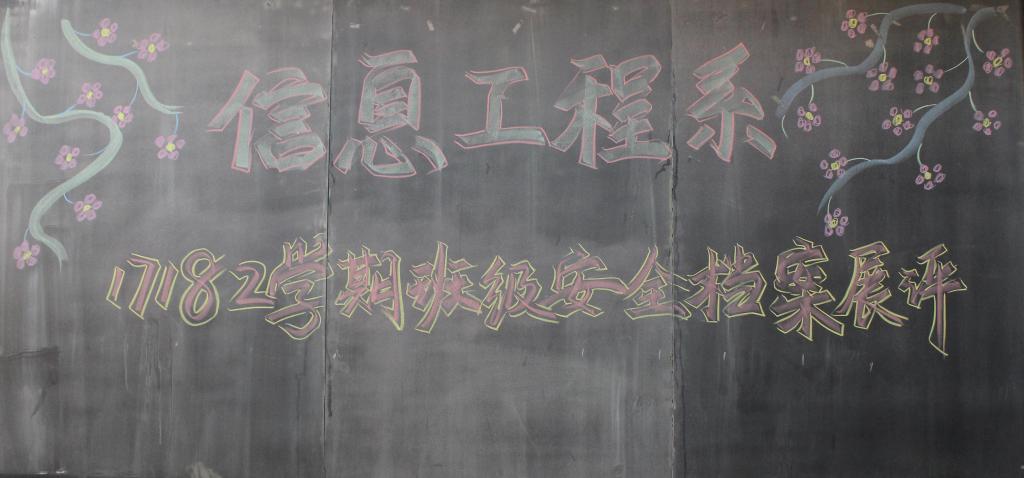 信息工程系
17182学期班级安全档案展评